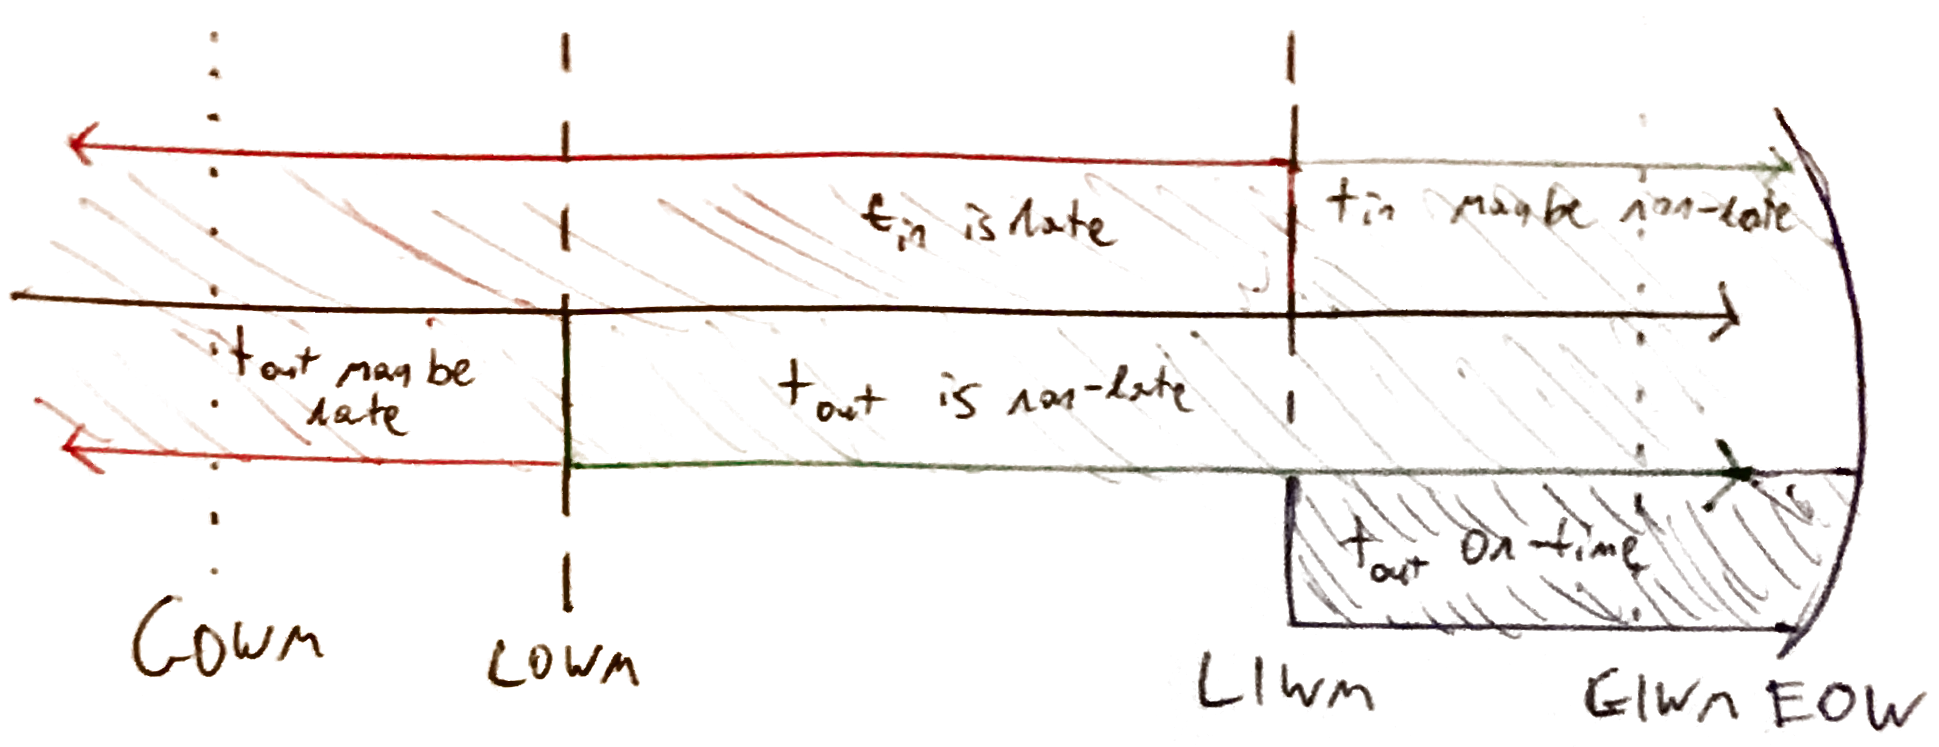 tin is late
tin maybe non-late
tout maybe
late
tout is non-late
tout on-time
GOWM
LOWM
LIWM
GIWM
EOW